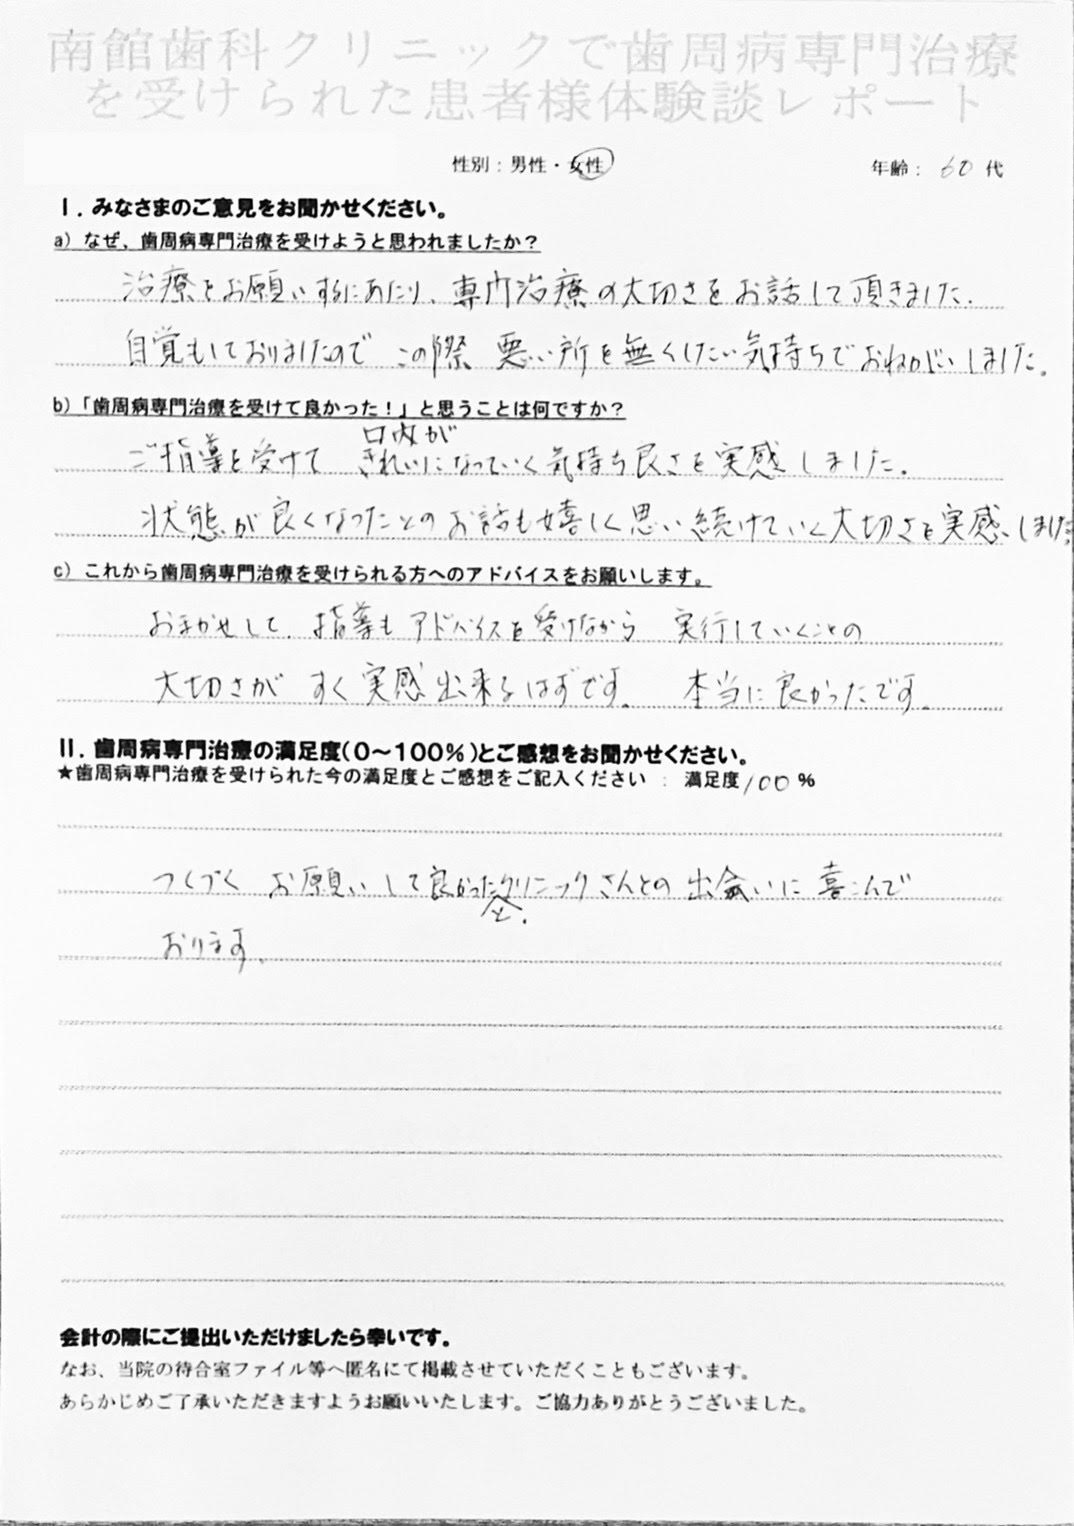 南館歯科クリニックで歯周病専門治療
を受けられた患者様体験談レポート
性別：男性・女性
年齢： 60 代
I．みなさまのご意見をお聞かせください。
a）なぜ、歯周病専門治療を受けようと思われましたか？
治療をお願いするにあたり、専門治療の大切さをお話して頂きました。
自覚もしておりましたので この際 悪い所を無くしたい気持ちでおねがいしました。
b）「歯周病専門治療を受けて良かった！」と思うことは何ですか？
口内が
ご指導を受けて きれいになっていく気持ち良さを実感しました。
状態が良くなったとのお話も嬉しく思い続けていく大切さを実感しました
c）これから歯周病専門治療を受けられる方へのアドバイスをお願いします。
おまかせして、指導もアドバイスを受けながら 実行していくことの
大切さが すぐ実感出来るはずです。 本当に良かったです。
II．歯周病専門治療の満足度（0～100％）とご感想をお聞かせください。
★歯周病専門治療を受けられた今の満足度とご感想をご記入ください ： 満足度 100 ％
つくづく お願いして良かったクリニックさんとの出会いに喜んで
と、
おります。
会計の際にご提出いただけましたら幸いです。
なお、当院の待合室ファイル等へ匿名にて掲載させていただくこともございます。
あらかじめご了承いただきますようお願いいたします。ご協力ありがとうございました。